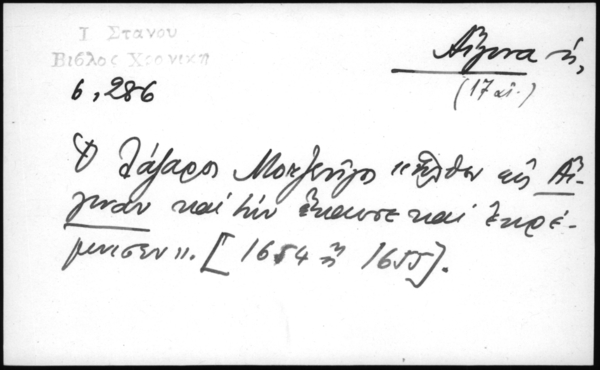 Ι Στανου
Βιβλος Χρονικη
6, 286
Αἴγινα ἡ,
(17 αἰ.)
Ὁ Λάζαρος Μοτζενῖγο «ἦλθεν εἰς Αἴ-
γιναν καὶ τὴν ἔκαυσε καὶ ἐκρέ-
μνισεν». [1654 ἢ 1655].